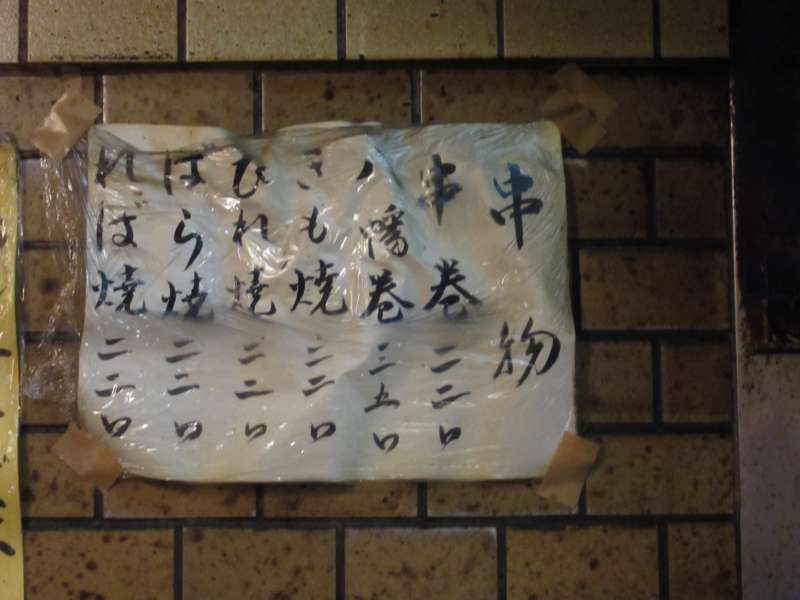 串物
串巻 二二〇
八幡巻 三五〇
きも焼 二二〇
ひれ焼 二二〇
ばら焼 二二〇
れば焼 二二〇